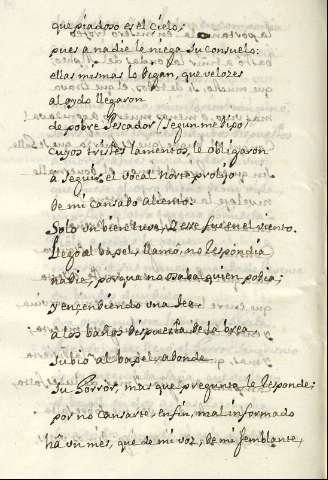 que piadoso es el cielo,
pues a nadie le niega su consuelo:
ellas mesmas lo digan, que velozes
al oydo llegaron
de pobre Pescador / segun me dixo
cuyos tristes lamentos, le obligaron
a seguir, el vocal norte prolijo
de mi cansado aliento:
Solo un bien tuve, i esse fue en el viento.
Llego al baxel, llamó, no respondia
nadie, porque no osaba quien podia;
y encendiendo una tea
a los baños dispuesta de la brea,
subio al baxel, adonde
su horror, mas que pregunta, le responde;
por no cansarte, enfin, mal informado
ha un mes, que de mi voz, de mi semblante,